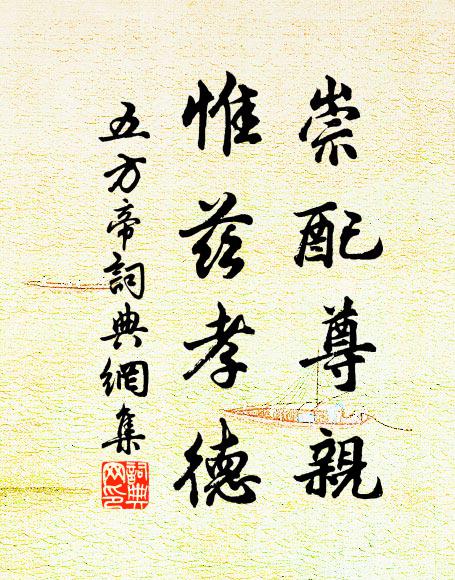 崇配尊親
惟茲孝德
五方帝詞典網集
詞典网印